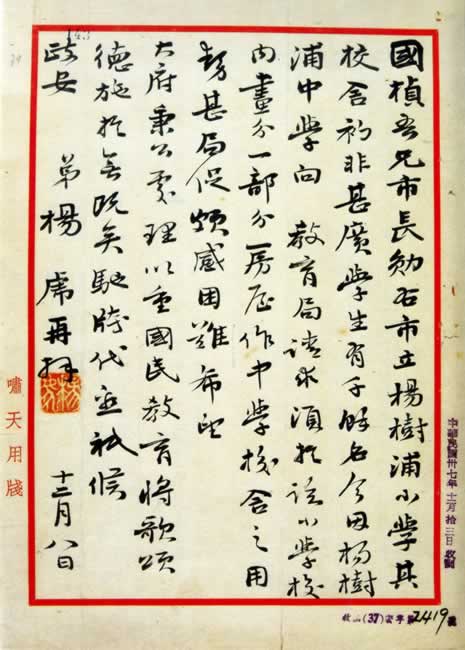 國楨吾兄市長勛右市立楊樹浦小學其
校舍初非甚廣學生有千餘名今因楊樹
浦中學向 教育局請求須於該小學校
內畫分一部分房屋作中學校舍之用
勢甚局促頗感困難希望
大府秉公處理以重國民教育將歌頌
德施於無既矣馳牋代面祗候
政安 弟楊虎再拜
十二月八日
嘯天用牋
中華民國卅七年十二月拾三日收到
(37)密字第2419號